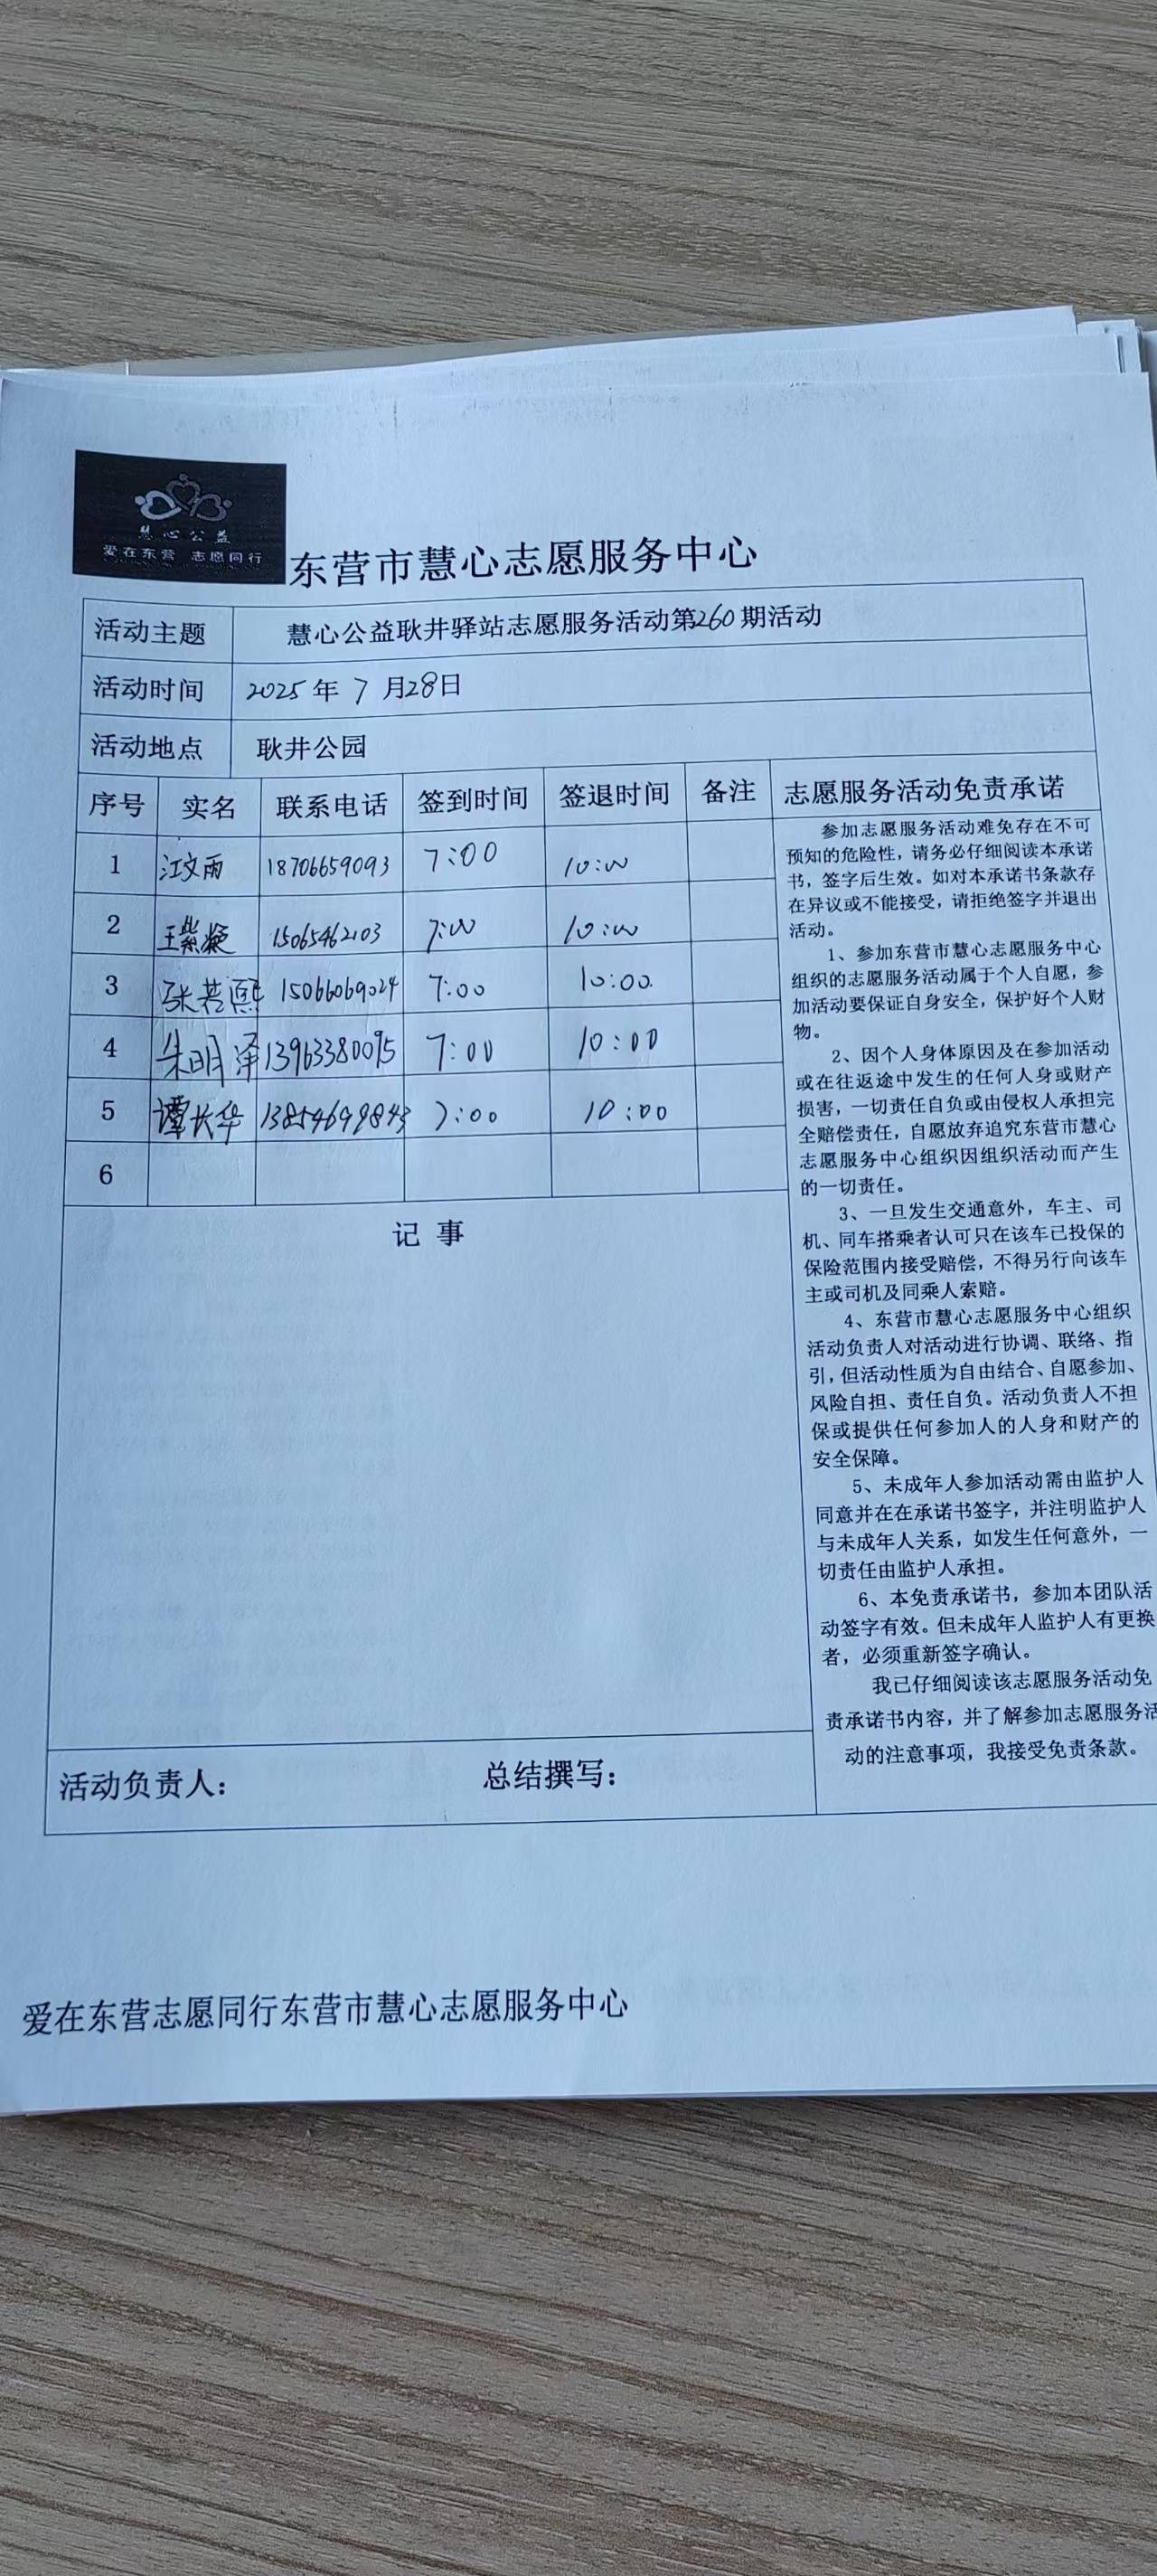 慧心公益
爱在东营 志愿同行
东营市慧心志愿服务中心
活动主题 慧心公益耿井驿站志愿服务活动第260期活动
活动时间 2025年 7 月28日
活动地点 耿井公园
序号 实名 联系电话 签到时间 签退时间 备注
1 江文雨 18706659093 7:00 10:00
2 王紫凝 15065462103 7:00 10:00
3 张若熙 15066069024 7:00 10:00
4 朱明泽 13963380095 7:00 10:00
5 谭长华 13854698843 7:00 10:00
6
记 事
活动负责人： 总结撰写：
志愿服务活动免责承诺
参加志愿服务活动难免存在不可
预知的危险性，请务必仔细阅读本承诺
书，签字后生效。如对本承诺书条款存
在异议或不能接受，请拒绝签字并退出
活动。
1、参加东营市慧心志愿服务中心
组织的志愿服务活动属于个人自愿，参
加活动要保证自身安全，保护好个人财
物。
2、因个人身体原因及在参加活动
或在往返途中发生的任何人身或财产
损害，一切责任自负或由侵权人承担完
全赔偿责任，自愿放弃追究东营市慧心
志愿服务中心组织因组织活动而产生
的一切责任。
3、一旦发生交通意外，车主、司
机、同车搭乘者认可只在该车已投保的
保险范围内接受赔偿，不得另行向该车
主或司机及同乘人索赔。
4、东营市慧心志愿服务中心组织
活动负责人对活动进行协调、联络、指
引，但活动性质为自由结合、自愿参加、
风险自担、责任自负。活动负责人不担
保或提供任何参加人的人身和财产的
安全保障。
5、未成年人参加活动需由监护人
同意并在在承诺书签字，并注明监护人
与未成年人关系，如发生任何意外，一
切责任由监护人承担。
6、本免责承诺书，参加本团队活
动签字有效。但未成年人监护人有更换
者，必须重新签字确认。
我已仔细阅读该志愿服务活动免
责承诺书内容，并了解参加志愿服务活
动的注意事项，我接受免责条款。
爱在东营志愿同行东营市慧心志愿服务中心